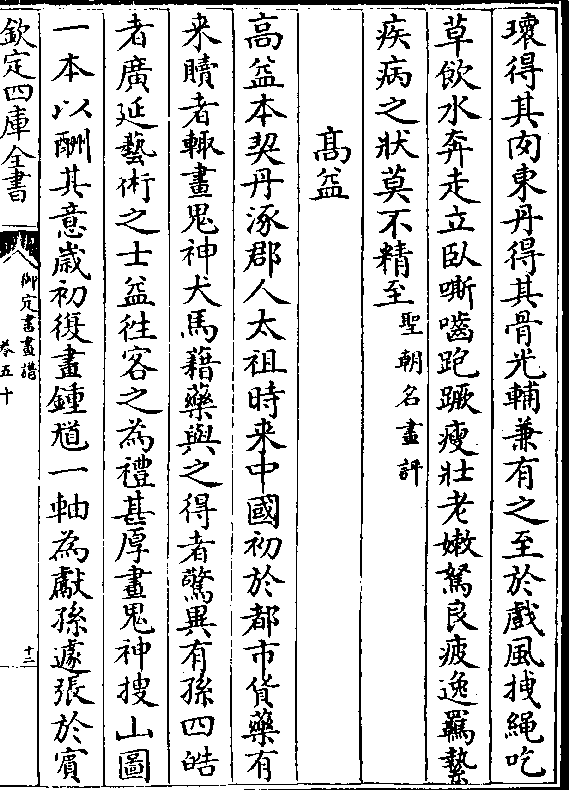 瓌得其肉東丹得其骨光輔兼有之至於戲風拽繩吃
草飲水奔走立臥嘶嚙跑蹶瘦壯老嫩駑良疲逸羈縶
疾病之狀莫不精至聖朝名畫評
高益
高益本契丹涿郡人太祖時来中國初於都市貨藥有
来贖者輙畫鬼神犬馬藉藥與之得者驚異有孫四皓
者廣延藝術之士益徃客之為禮甚厚畫鬼神搜山圖
一本以酬其意歲初復畫鍾馗一軸為獻孫遽張於賓
欽定四庫全書
御定書畫譜
卷五十
十三